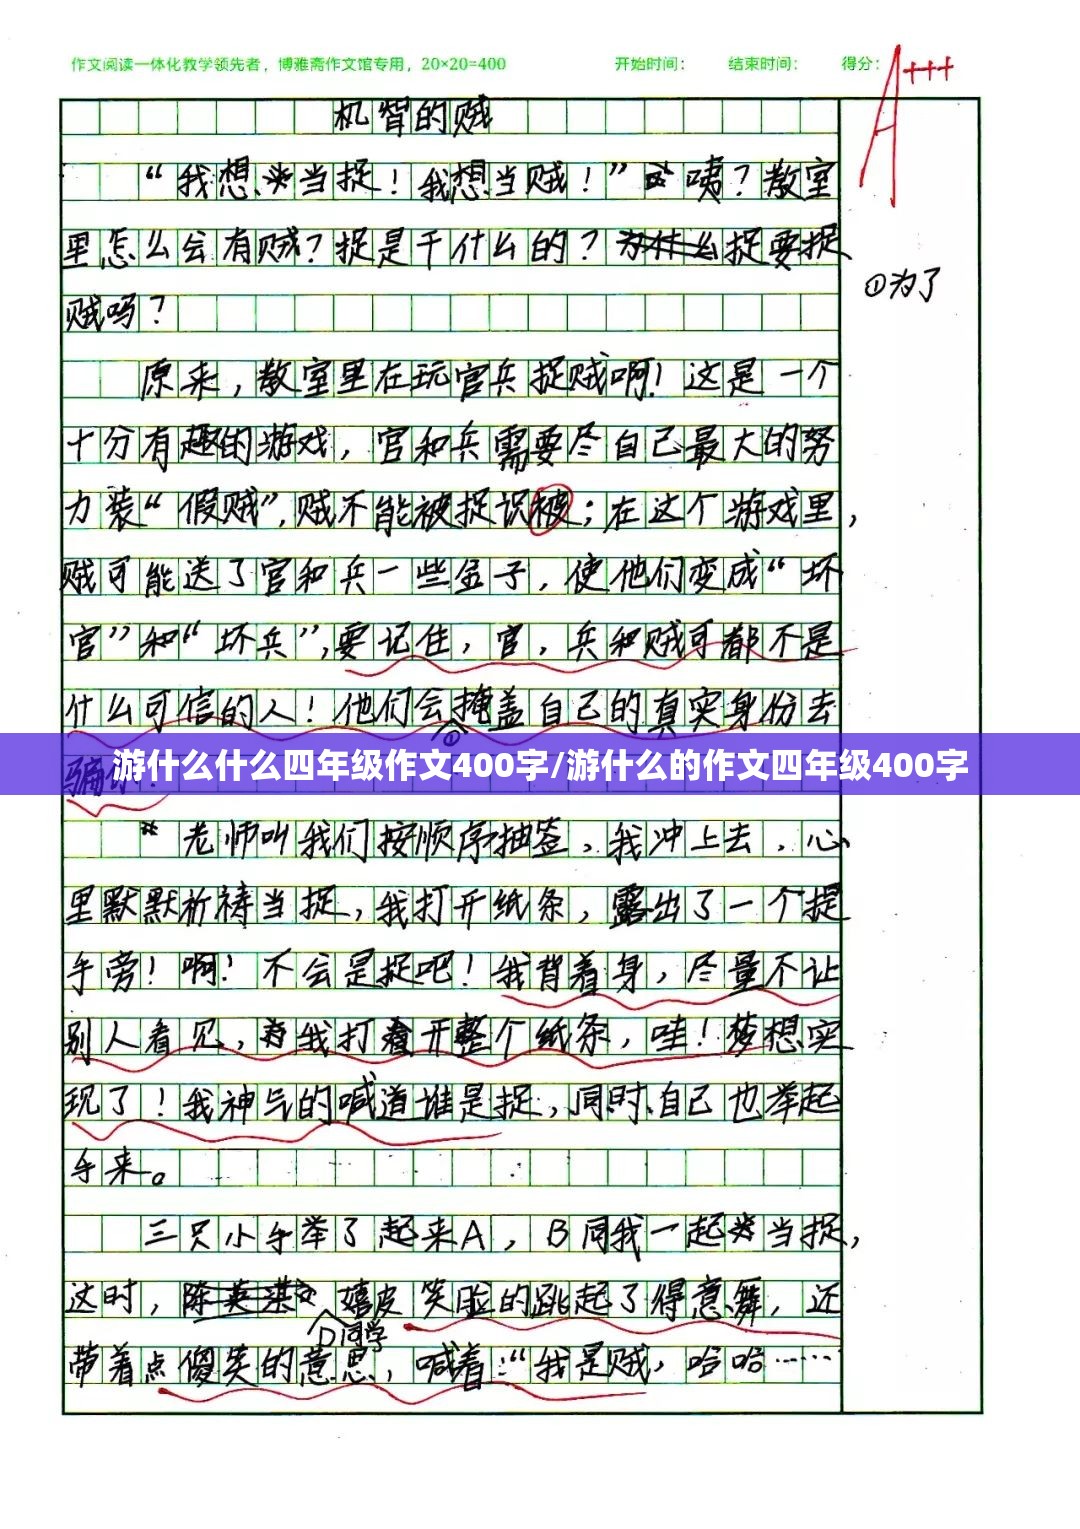 作文阅读一体化教学领先者，博雅斋作文馆专用，20×20=400 开始时间： 结束时间： 得分：
A+++
机智的贼
“我想当捉！我想当贼！”咦？教室
里怎么会有贼？捉是干什么的？捉要捉
①为了
贼吗？
原来，教室里在玩官兵捉贼啊！这是一个
十分有趣的游戏，官和兵需要尽自己最大的努
力装“假贼”，贼不能被捉识被；在这个游戏里，
贼可能送了官和兵一些金子，使他们变成“坏
官”和“坏兵”，要记住，官，兵和贼可都不是
什么可信的人！他们会掩盖自己的真实身份去
①
骗你！
游什么什么四年级作文400字/游什么的作文四年级400字
老师叫我们按顺序抽签，我冲上去，心
里默默祈祷当捉，我打开纸条，露出了一个提
手旁！啊！不会是捉吧！我背着身，尽量不让
别人看见，我打开整个纸条，哇！梦想实
现了！我神气的喊道谁是捉，同时自己也举起
手来。
三只小手举了起来A，B同我一起当捉，
这时，嬉皮笑脸的跳起了得意舞，还
D同学
带着点傻笑的意思，喊着：“我是贼，哈哈……